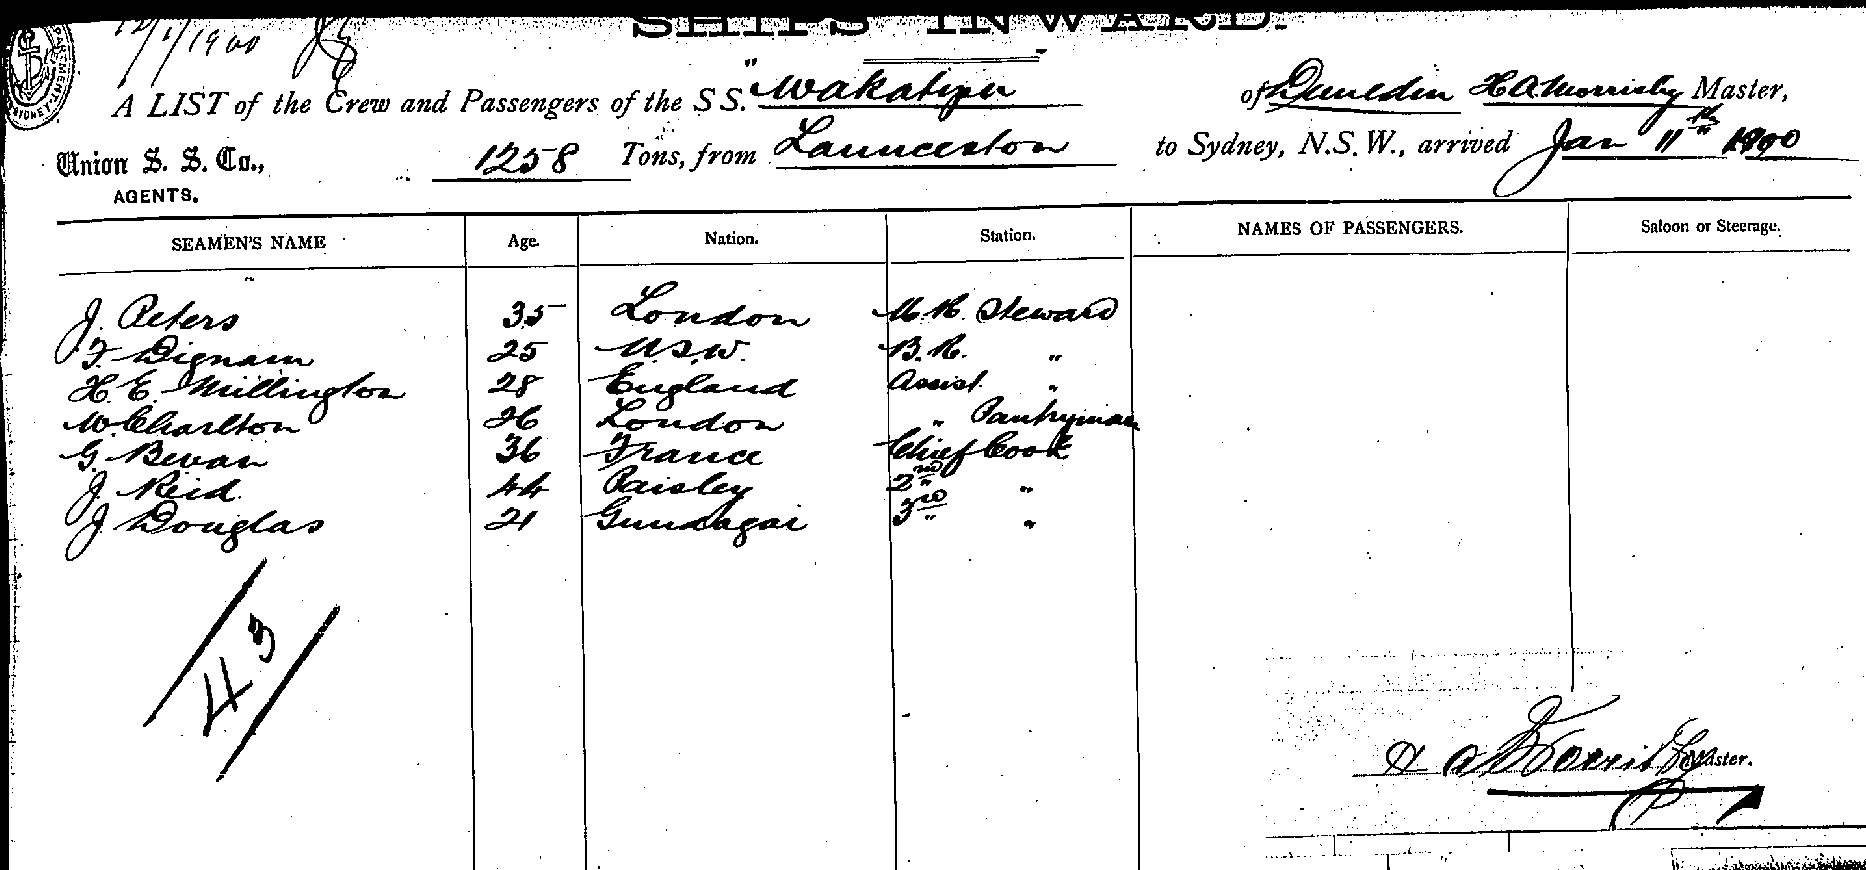 SHIPS INWARD.
12/1/1900
A LIST of the Crew and Passengers of the S S. "Wakatipu of Dunedin H A Morrisby Master,
Union S. S. Co., 1258 Tons, from Launceston to Sydney, N.S.W., arrived Jan 11th 1900
AGENTS.
SEAMEN'S NAME Age. Nation. Station. NAMES OF PASSENGERS. Saloon or Steerage.
J. Peters 35 London M. R. Steward
F. Dignam 25 N.S.W. B.R. "
H. E. Millington 28 England Assist. "
W. Charlton 26 London " Pantryman
G. Bevan 36 France Chief Cook
J. Reid 44 Paisley 2nd "
J. Douglas 21 Gundagai 3rd "
43
H A Morrisby Master.